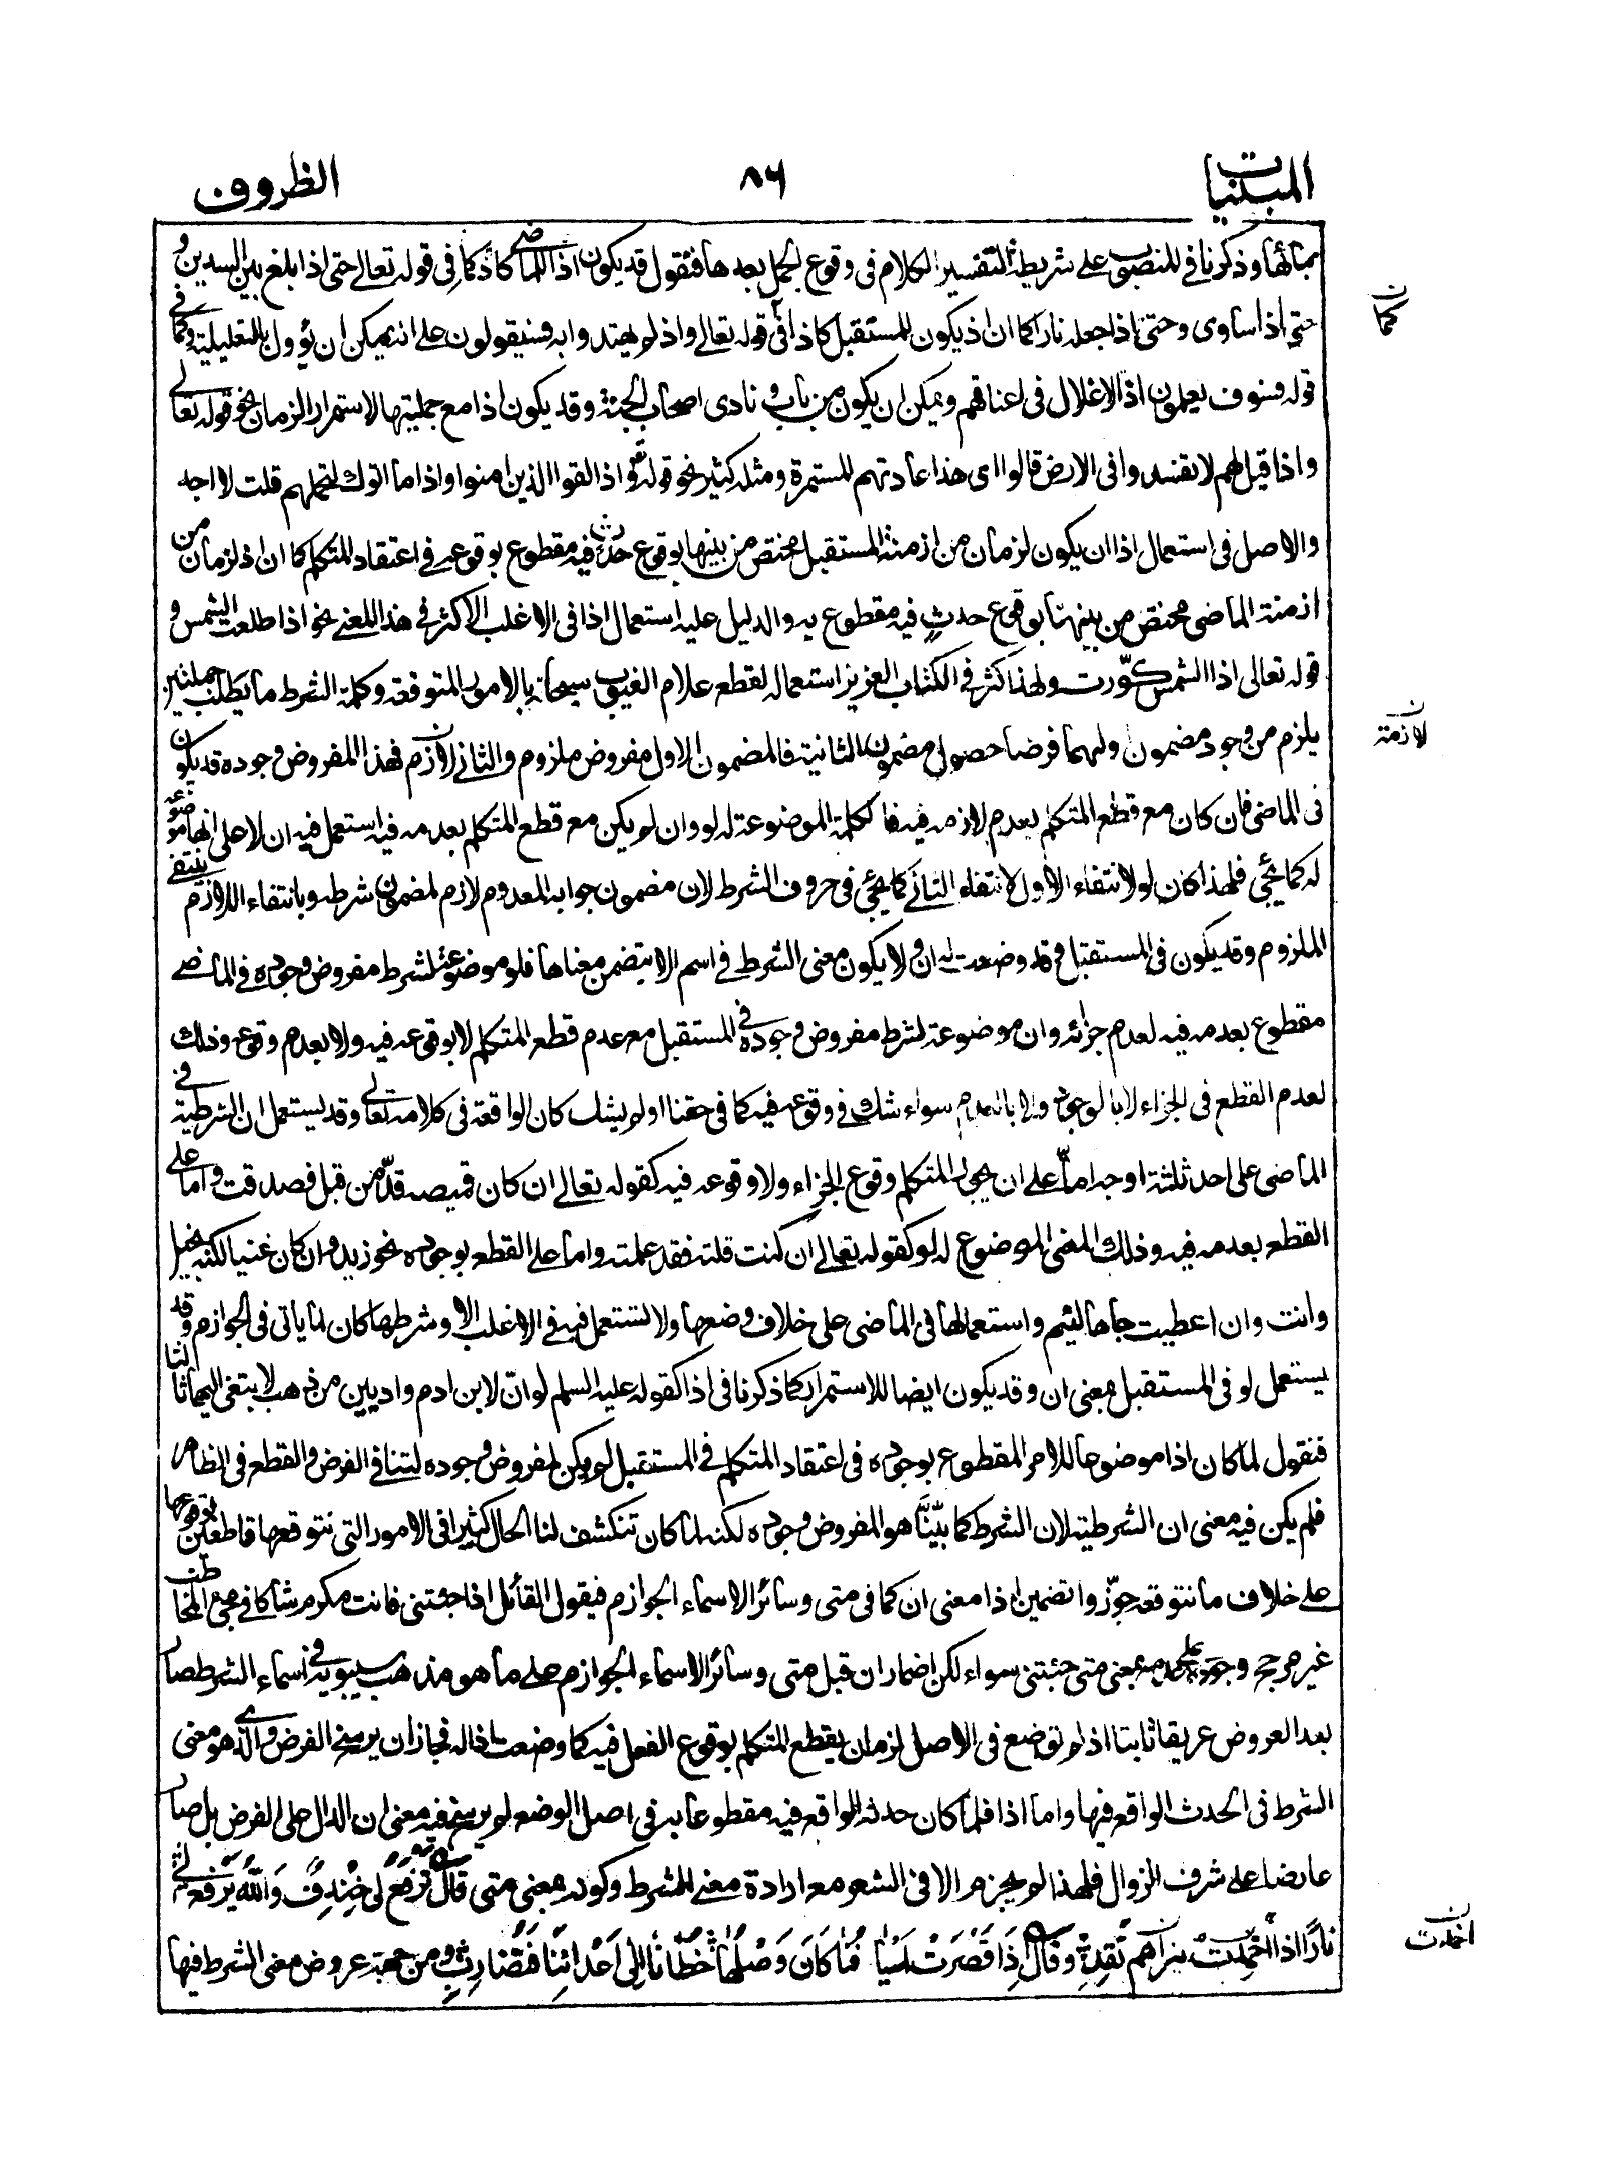 المبنيات
٨٦
الظروف
بمائها وذكرنا في المنصوب على شريطة التفسير الكلام فى وقوع الجمل بعدها فنقول قد يكون اذا للماضى كاذ كما فى قوله تعالى حتى اذا بلغ بين السدين و
حتى اذا ساوى وحتى اذا جعله نارا كما ان اذ يكون للمستقبل كاذا فى قوله تعالى واذ لم يهتدوا به فسيقولون على انه يمكن ان يؤول بالتعليلية وكما فى
قوله فسوف يعلمون اذ الاغلال فى اعناقهم ويمكن ان يكون من باب و نادى اصحاب الجنة وقد يكون اذا مع جملتيها لاستمرار الزمان نحو قوله تعالى
واذا قيل لهم لا تفسدوا فى الارض قالوا اى هذا عادتهم المستمرة ومثله كثير نحو قوله تع واذا لقوا الذين امنوا واذا ما اتوك لتحملهم قلت لا اجد
والاصل فى استعمال اذا ان يكون لزمان من ازمنة المستقبل مختص من بينها بوقوع حدث فيه مقطوع بوقوعه فى اعتقاد المتكلم كما ان اذ لزمان من
ازمنة الماضى مختص من بينها بوقوع حدث فيه مقطوع به والدليل عليه استعمال اذا فى الاغلب الاكثر فى هذا المعنى نحو اذا طلعت الشمس و
قوله تعالى اذا الشمس كوّرت ولهذا كثر فى الكتاب العزيز استعماله لقطع علام الغيوب سبحانه بالامور المتوقعة وكلمة الشرط ما يطلب جملتين
يلزم من وجود مضمون اولهما فرضا حصول مضمون الثانية فالمضمون الاول مفروض ملزوم والثانى لازم فهذا المفروض وجوده قد يكون
فى الماضى فان كان مع قطع المتكلم بعدم لازمه فيه فالكلمة الموضوعة له لو وان لم يكن مع قطع المتكلم بعدمه فيه استعمل فيه ان لا على انها موضوعة
له كما يجئ فلهذا كان لو لانتفاء الاول لانتفاء الثانى كما يجئ فى حروف الشرط لان مضمون جوابه المعدوم لازم لمضمون شرطه وبانتفاء اللازم ينتفى
الملزوم وقد يكون فى المستقبل وقد وضعت له ان ولا يكون معنى الشرط فى اسم الا بتضمن معناها فلو موضوعة لشرط مفروض وجوده فى الماضى
مقطوع بعدمه فيه لعدم جزائه وان موضوعة لشرط مفروض وجوده فى المستقبل مع عدم قطع المتكلم لا بوقوعه فيه ولا بعدم وقوعه وذلك
لعدم القطع فى الجزاء لا بالوجود ولا بالعدم سواء شك فى وقوعه فيه كما فى حقنا او لم يشك كان الواقعة فى كلامه تعالى وقد يستعمل ان الشرطية فى
الماضى على احد ثلثة اوجه امّا على ان يجوز المتكلم وقوع الجزاء ولا وقوعه فيه كقوله تعالى ان كان قميصه قدّ من قبل فصدقت واما على
القطع بعدمه فيه وذلك المعنى الموضوع له لو كقوله تعالى ان كنت قلته فقد علمته واما على القطع بوجوده نحو زيد وان كان غنيا لكنه بخيل
وانت وان اعطيت جاها لئيم واستعمالها فى الماضى على خلاف وضعها ولا تستعمل فيه فى الاغلب الا وشرطها كان لما ياتى فى الجوازم وقد
يستعمل لو فى المستقبل بمعنى ان وقد يكون ايضا للاستمرار كما ذكرنا فى اذا كقوله عليه السلم لو انّ لابن ادم واديين من ذهب لابتغى اليهما ثالثا
فنقول لما كان اذا موضوعا للامر المقطوع بوجوده فى اعتقاد المتكلم فى المستقبل لم يكن لمفروض وجوده لتنافى الفرض والقطع فى الظاهر
فلم يكن فيه معنى ان الشرطية لان الشرط كما بيّنّا هو المفروض وجوده لكنه لما كان تنكشف لنا الحال كثيرا فى الامور التى نتوقعها قاطعين بوقوعها
على خلاف ما نتوقعه جوّزوا تضمين اذا معنى ان كما فى متى وسائر الاسماء الجوازم فيقول القائل اذا جئتنى فانت مكرم شاكا فى مجئ المخاطب
غير مرجح وجوده على عدمه بمعنى متى جئتنى سواء لكن اضمار ان قبل متى وسائر الاسماء الجوازم على ما هو مذهب سيبويه فى اسماء الشرط صار
بعد العروض عريقا ثابتا اذ لم توضع فى الاصل لزمان يقطع المتكلم بوقوع الفعل فيه كما وضعت اذا له فجاز ان يرسخ الفرض الذى هو معنى
الشرط فى الحدث الواقع فيها واما اذا فلما كان حدثه الواقع فيه مقطوعا به فى اصل الوضع لم يرسخ فيه معنى ان الدال على الفرض بل صار
عارضا على شرف الزوال فلهذا لم يجزم الا فى الشعر مع ارادة معنى الشرط وكونه بمعنى متى قال ترفع لى خندف والله يرفع لى
نارا اذا اخمدت نيرانهم تقد وقال اذا قصرت اسيافنا كان وصلها خطانا الى اعدائنا فنضارب ومن جهة عروض معنى الشرط فيها
ن كما
ن لازمة
ن اخمدت